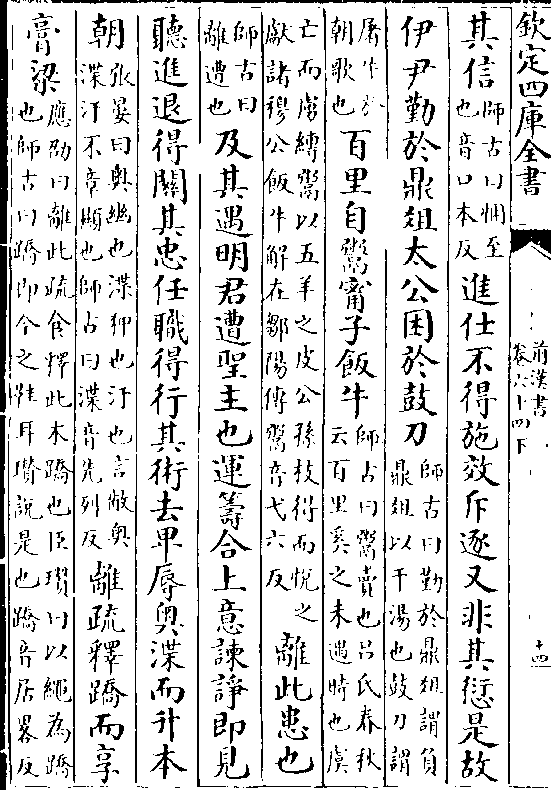 欽定四庫全書
前漢書
卷六十四下
十四
其信師古曰悃至也音口本反進仕不得施效斥逐又非其愆是故
伊尹勤於鼎俎太公困於鼓刀師古曰勤於鼎俎謂負鼎俎以干湯也鼓刀謂
屠牛於朝歌也百里自鬻甯子飯牛師古曰鬻賣也吕氏春秋云百里奚之未遇時也虞
亡而虜縛鬻以五羊之皮公孫枝得而悅之獻諸穆公飯牛解在鄒陽傳鬻音弋六反離此患也
師古曰離遭也及其遇明君遭聖主也運籌合上意諫諍即見
聽進退得關其忠任職得行其術去卑辱奥渫而升本
朝張晏曰奥幽也渫狎也汙也言敝奥渫汙不章顯也師古曰渫音先列反離疏釋蹻而享
膏粱應劭曰離此疏食釋此木蹻也臣瓚曰以繩為蹻也師古曰蹻即今之鞋耳瓚說是也蹻音居畧反